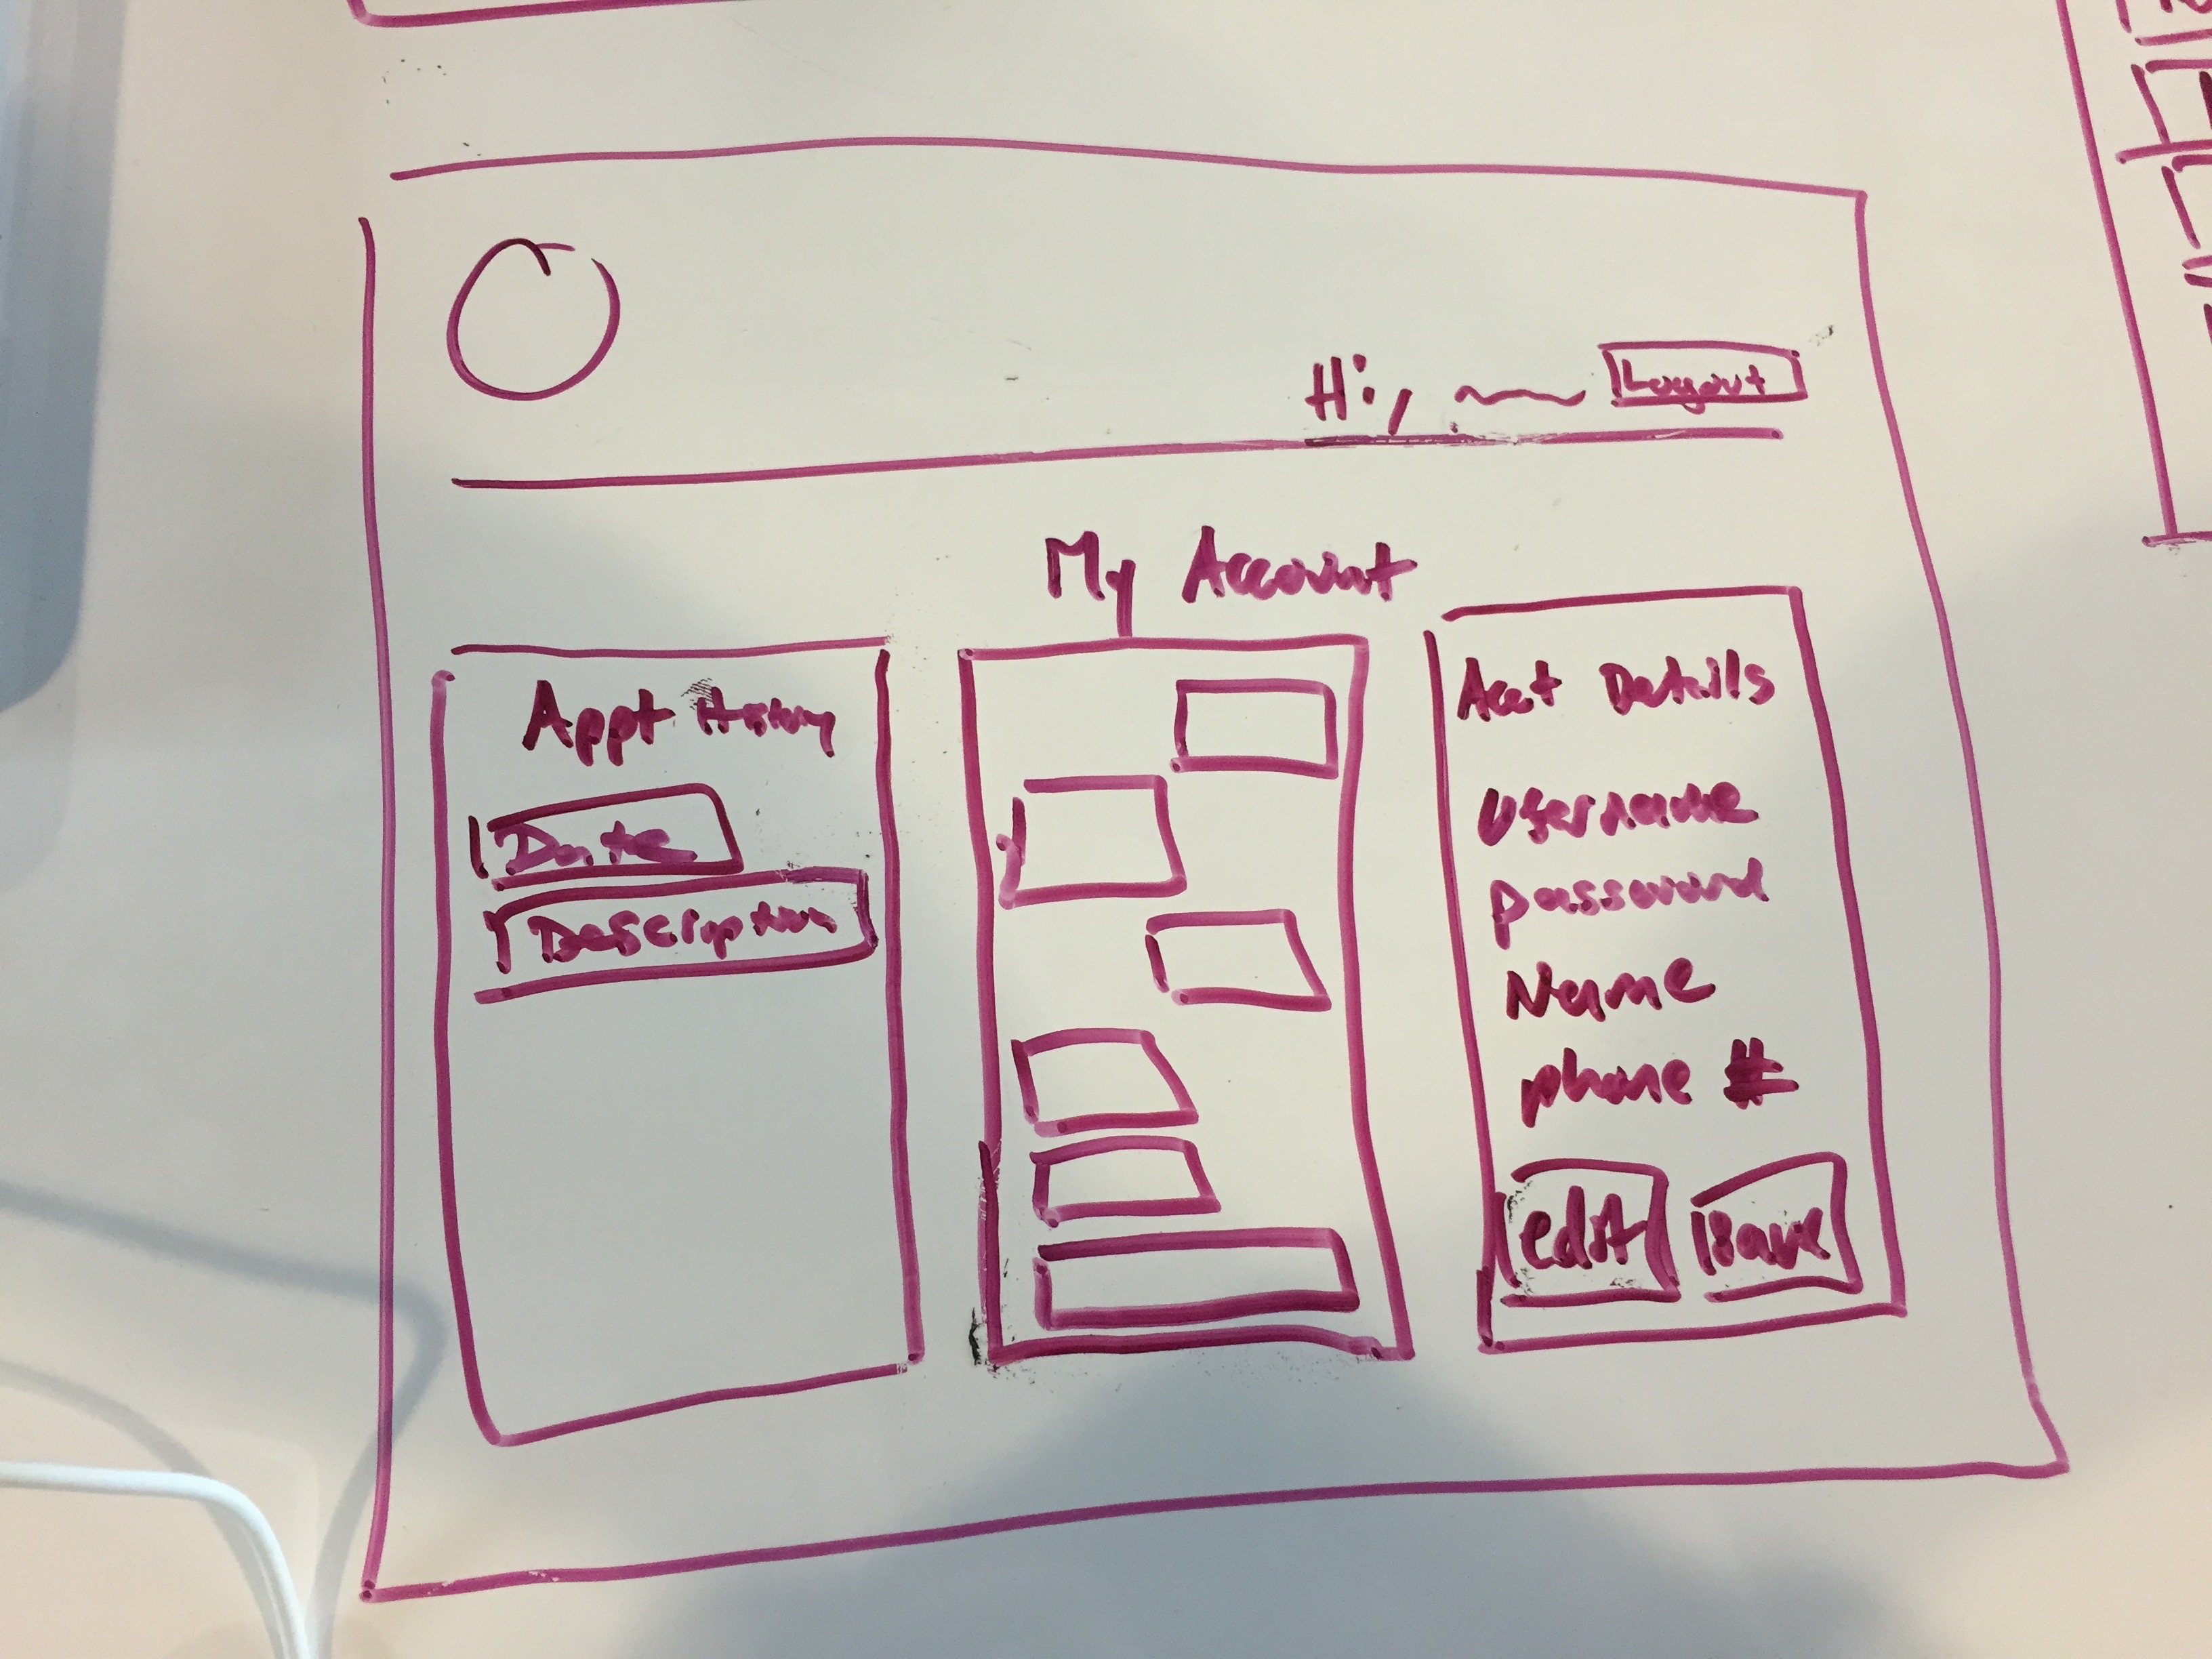 Hi, Logout
My Account
Appt History
Date
Description
Acct Details
Username
password
Name
phone #
edit save